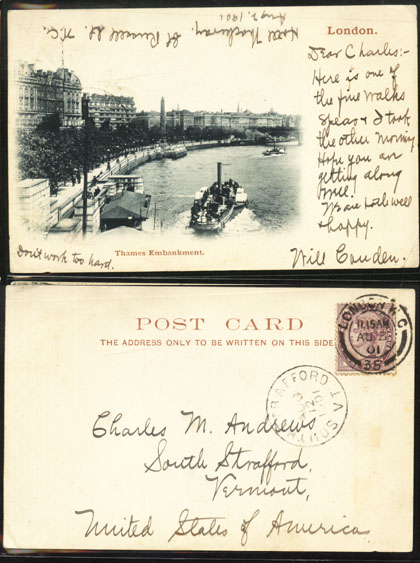 Hotel Thackeray, Gt Russell St. W.C.
Aug 2, 1901
London.
Dear Charles:-
Here is one of
the fine walks
Spear & I took
the other morning
Hope you are
getting along
well.
We are both well
& happy.
Will Couden.
Don't work too hard.
Thames Embankment.
POST CARD
THE ADDRESS ONLY TO BE WRITTEN ON THIS SIDE
LONDON W.C
11.15AM
AU 2
01
35
SOUTH STRAFFORD VT
1901
Charles M. Andrews
South Strafford,
Vermont,
United States of America